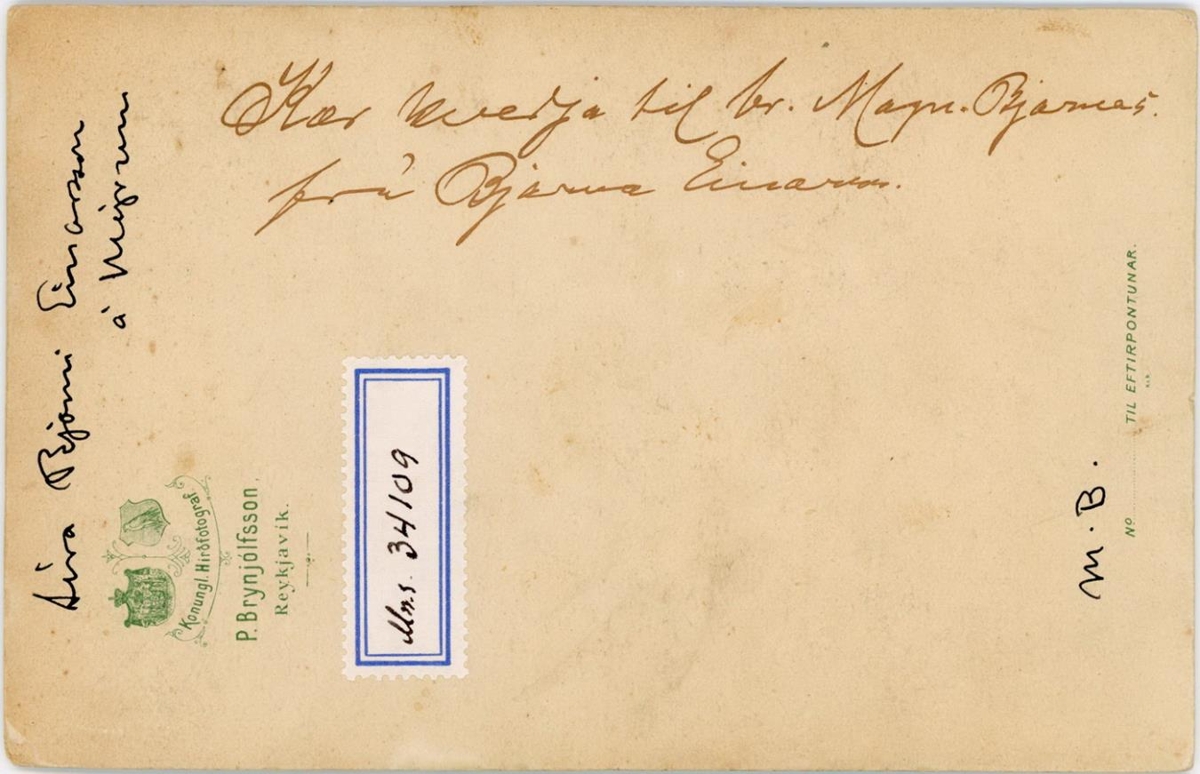 Kær kveðja til hr. Magn. Bjarnas.
frá Bjarna Einarss.
Síra Bjarni Einarsson
á Mýrum
Konungl. Hirðfotograf.
P. Brynjólfsson,
Reykjavík.
Mms. 34109
M.B.
No TIL EFTIRPÖNTUNAR.